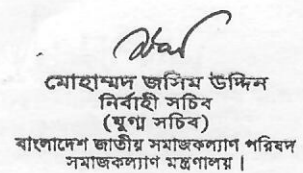 মোহাম্মদ জসিম উদ্দিন
নির্বাহী সচিব
(যুগ্ম সচিব)
বাংলাদেশ জাতীয় সমাজকল্যাণ পরিষদ
সমাজকল্যাণ মন্ত্রণালয় |